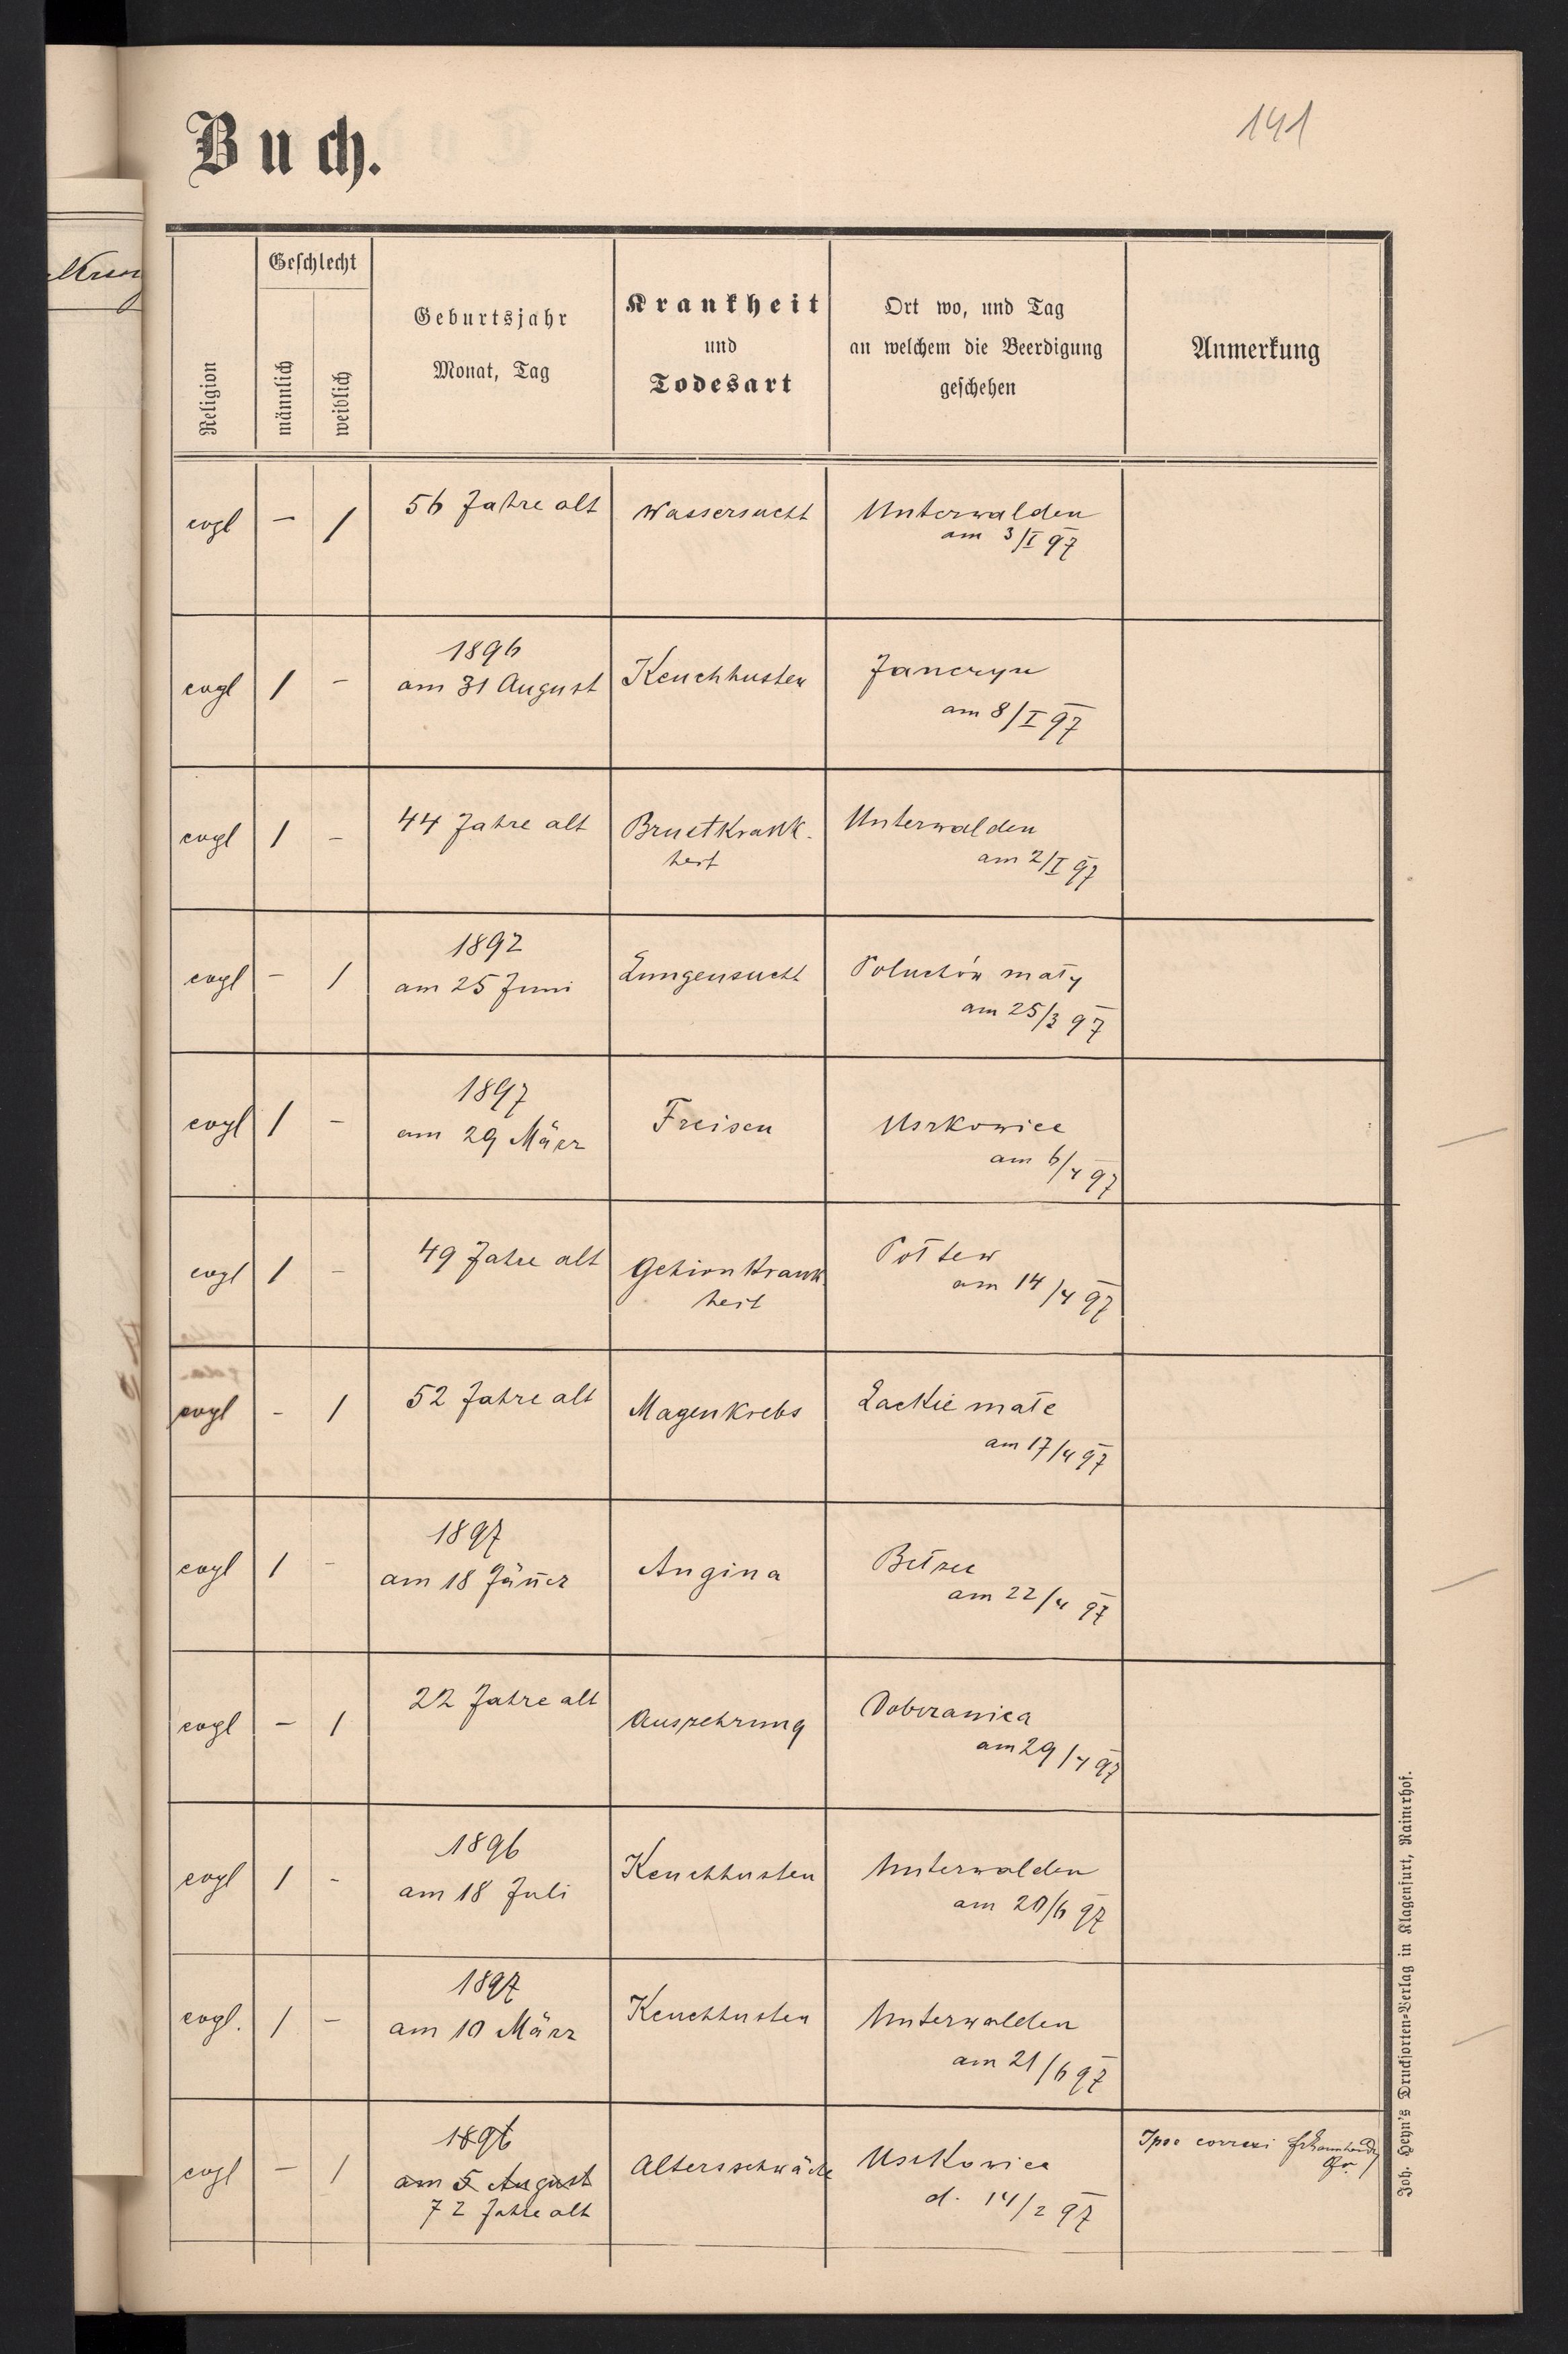 Buch.
141
Religion
Geschlecht
männlich
weiblich
Geburtsjahr
Monat, Tag
Krankheit
und
Todesart
Ort wo, und Tag
an welchem die Beerdigung
geschehen
Anmerkung
evgl — 1 56 Jahre alt Wassersucht Unterwalden
am 3/I 97
1896
evgl 1 — am 31 August Keuchhusten Janczyn
am 8/I 97
evgl 1 — 44 Jahre alt Brustkrank-
heit
Unterwalden
am 2/I 97
1892
evgl — 1 am 25 Juni Lungensucht Poluchów mały
am 25/3 97
1897
evgl 1 — am 29 März Freisen Uszkowice
am 6/4 97
evgl 1 — 49 Jahre alt Gehirnkrank
heit
Połtew
am 14/4 97
evgl - 1 52 Jahre alt Magenkrebs Lackie małe
am 17/4 97
1897
evgl 1 — am 18 Jäner Angina Bełzec
am 22/4 97
evgl — 1 22 Jahre alt Auszehrung Dobrzanica
am 29/4 97
1896
evgl 1 - am 18 Juli Keuchhusten Unterwalden
am 20/6 97
1897
evgl. 1 — am 10 März Keuchhusten Unterwalden
am 21/6 97
1896
am 5 August
evgl — 1 72 Jahre alt Altersschwäche Uszkowice
d. 14/2 97
Ipse correxi
Joh. Heyn's Drucksorten-Verlag in Klagenfurt, Rainerhof.